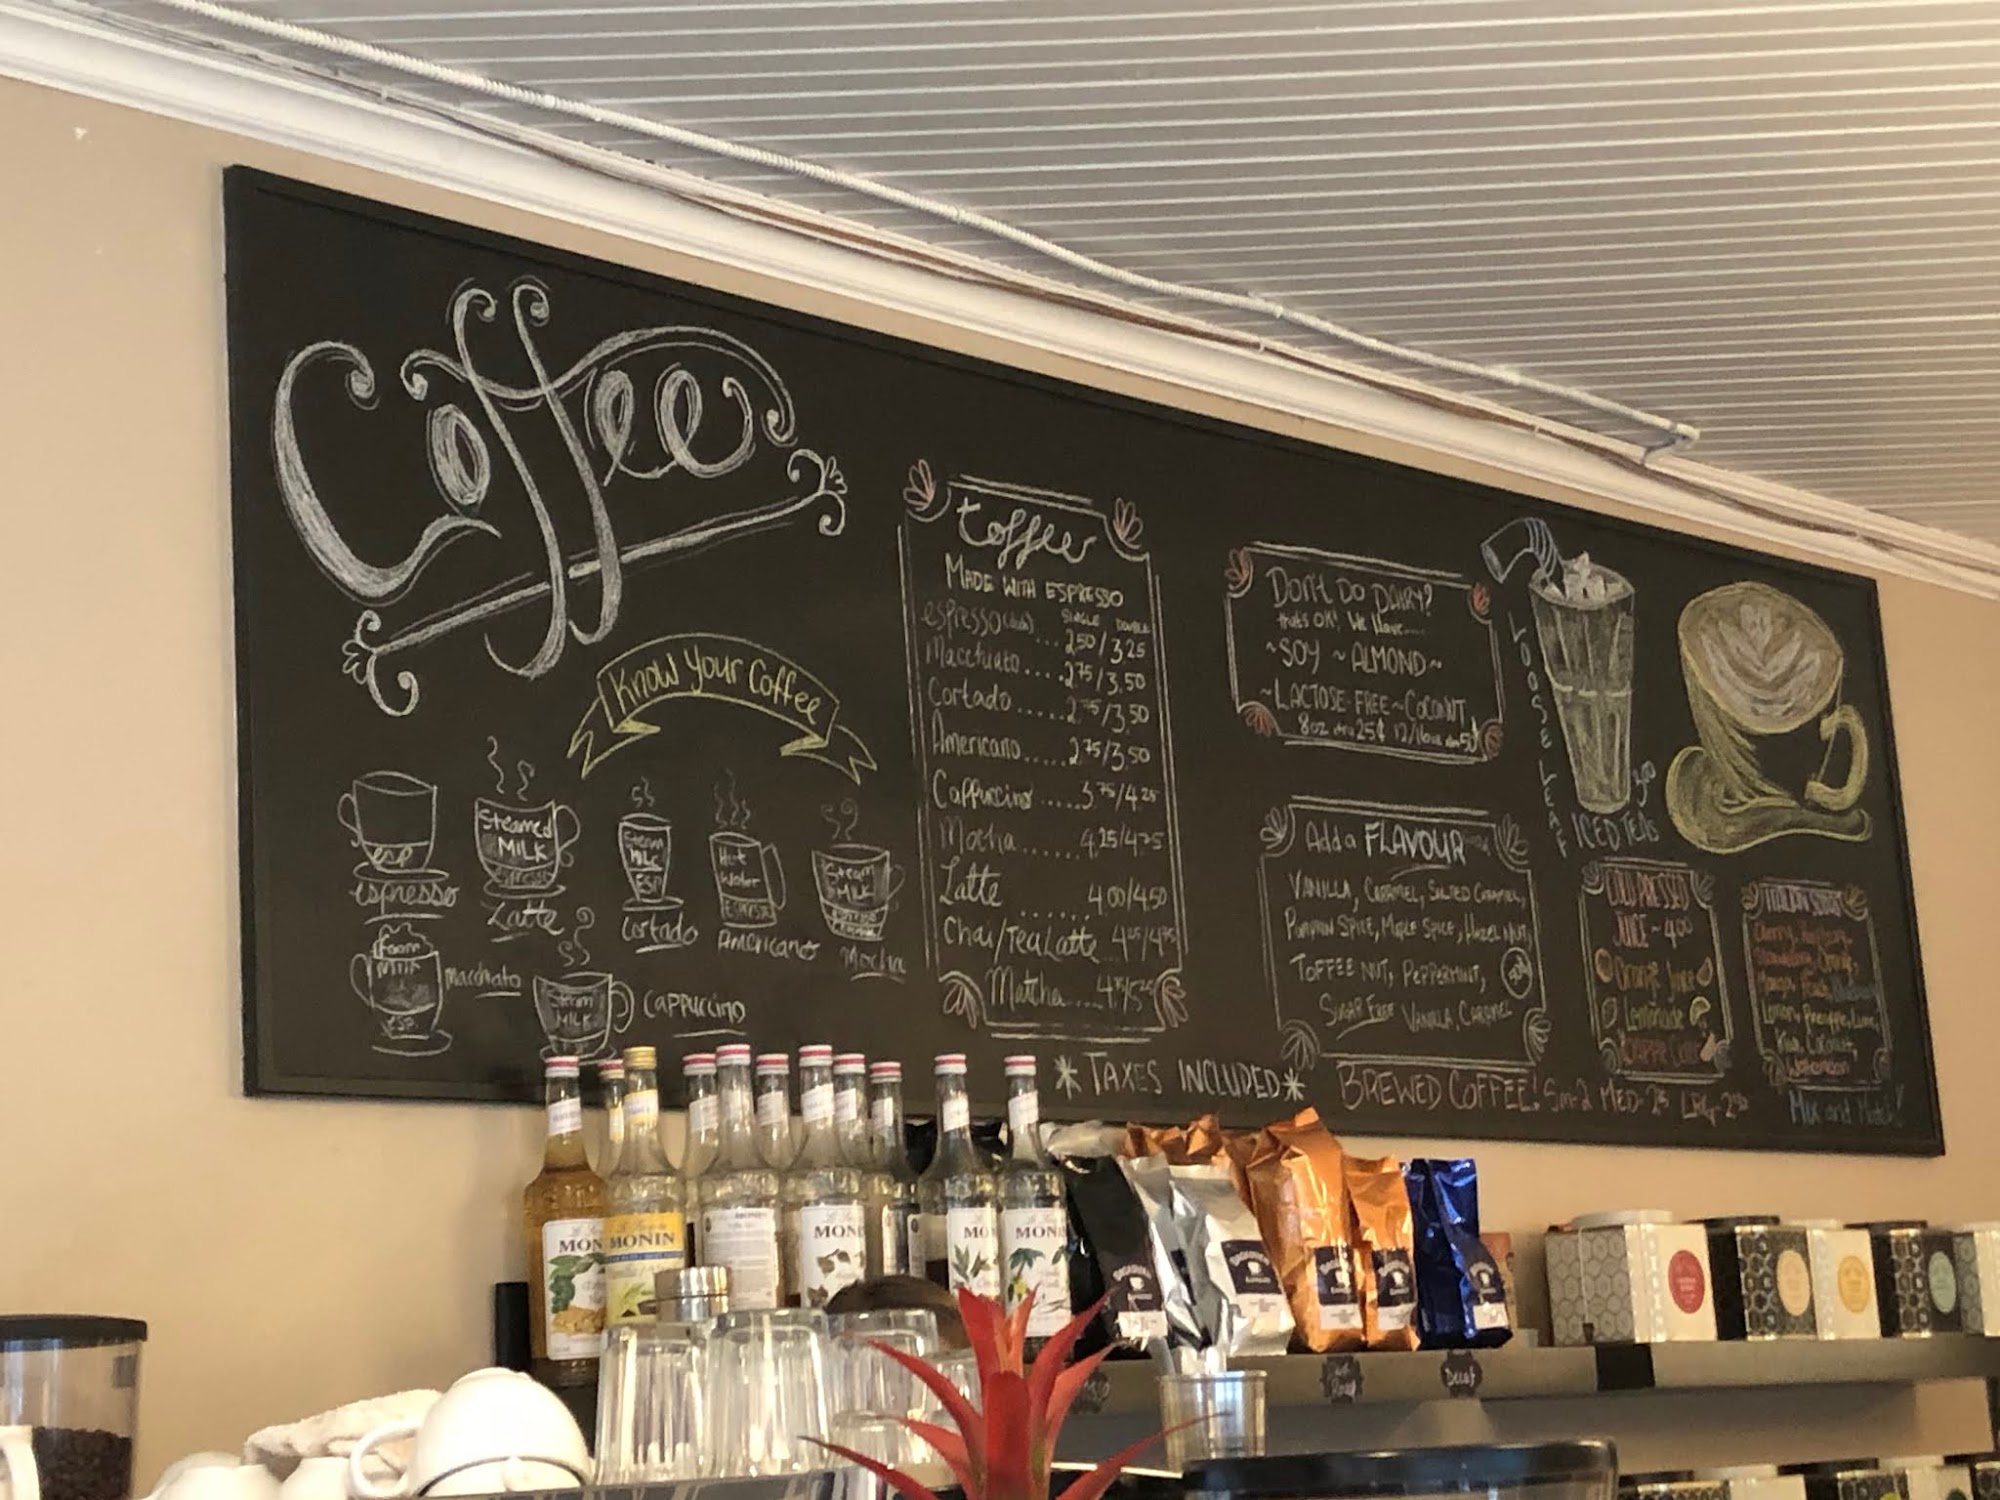 Coffee
Know Your Coffee
esp
espresso
Steamed
MILK
espresso
Latte
Steam
MILK
ESP
Cortado
Hot
Water
ESPRESSO
Americano
Steam
MILK
Mocha
foam
MILK
esp
Macchiato
Steam
MILK
Cappuccino
toffee
MADE WITH ESPRESSO
SINGLE DOUBLE
espresso ... 2.50/3.25
Macchiato .... 2.75/3.50
Cortado ..... 2.75/3.50
Americano ..... 2.75/3.50
Cappuccino ..... 3.75/4.25
Mocha ...... 4.25/4.75
Latte ...... 4.00/4.50
Chai/Tea Latte ... 4.25/4.75
Matcha .... 4.75/5.25
DON'T DO DAIRY?
that's OK! We have....
~SOY ~ALMOND~
~LACTOSE-FREE~COCONUT
8oz xtra 25¢ 12/16oz xtra 50¢
LOOSE LEAF
ICED TEAS
3.00
Add a FLAVOUR
VANILLA, CARAMEL, SALTED CARAMEL,
PUMPKIN SPICE, MAPLE SPICE, HAZEL NUT,
TOFFEE NUT, PEPPERMINT,
SUGAR FREE VANILLA, CARAMEL
COLD PRESSED
JUICE ~ 4.00
Orange Juice
Lemonade
ITALIAN SODAS
Cherry, Raspberry,
Strawberry, Orange,
Mango, Peach,
Lemon, Pineapple, Lime,
Kiwi, Coconut,
Watermelon
Mix and Match!
*TAXES INCLUDED*
BREWED COFFEE! Sm-2 MED-2.25 LRG-2.50
MONIN
MONIN
MONIN
MONIN
MONIN
Decaf